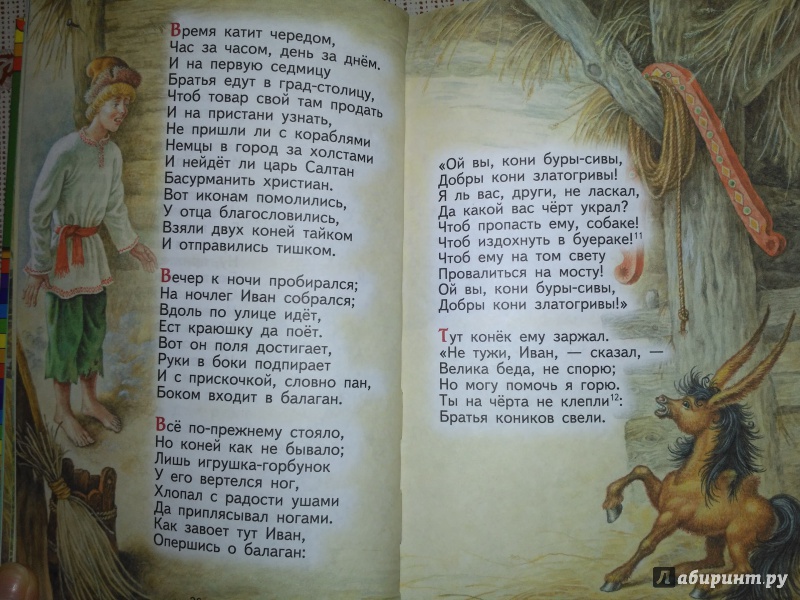 Время катит чередом,
Час за часом, день за днём.
И на первую седмицу
Братья едут в град-столицу,
Чтоб товар свой там продать
И на пристани узнать,
Не пришли ли с кораблями
Немцы в город за холстами
И нейдёт ли царь Салтан
Басурманить христиан.
Вот иконам помолились,
У отца благословились,
Взяли двух коней тайком
И отправились тишком.
Вечер к ночи пробирался;
На ночлег Иван собрался;
Вдоль по улице идёт,
Ест краюшку да поёт.
Вот он поля достигает,
Руки в боки подпирает
И с прискочкой, словно пан,
Боком входит в балаган.
Всё по-прежнему стояло,
Но коней как не бывало;
Лишь игрушка-горбунок
У его вертелся ног,
Хлопал с радости ушами
Да приплясывал ногами.
Как завоет тут Иван,
Опершись о балаган:
«Ой вы, кони буры-сивы,
Добры кони златогривы!
Я ль вас, други, не ласкал,
Да какой вас чёрт украл?
Чтоб пропасть ему, собаке!
Чтоб издохнуть в буераке!11
Чтоб ему на том свету
Провалиться на мосту!
Ой вы, кони буры-сивы,
Добры кони златогривы!»
Тут конёк ему заржал.
«Не тужи, Иван, — сказал, —
Велика беда, не спорю;
Но могу помочь я горю.
Ты на чёрта не клепли12:
Братья коников свели.
Лабиринт.ру